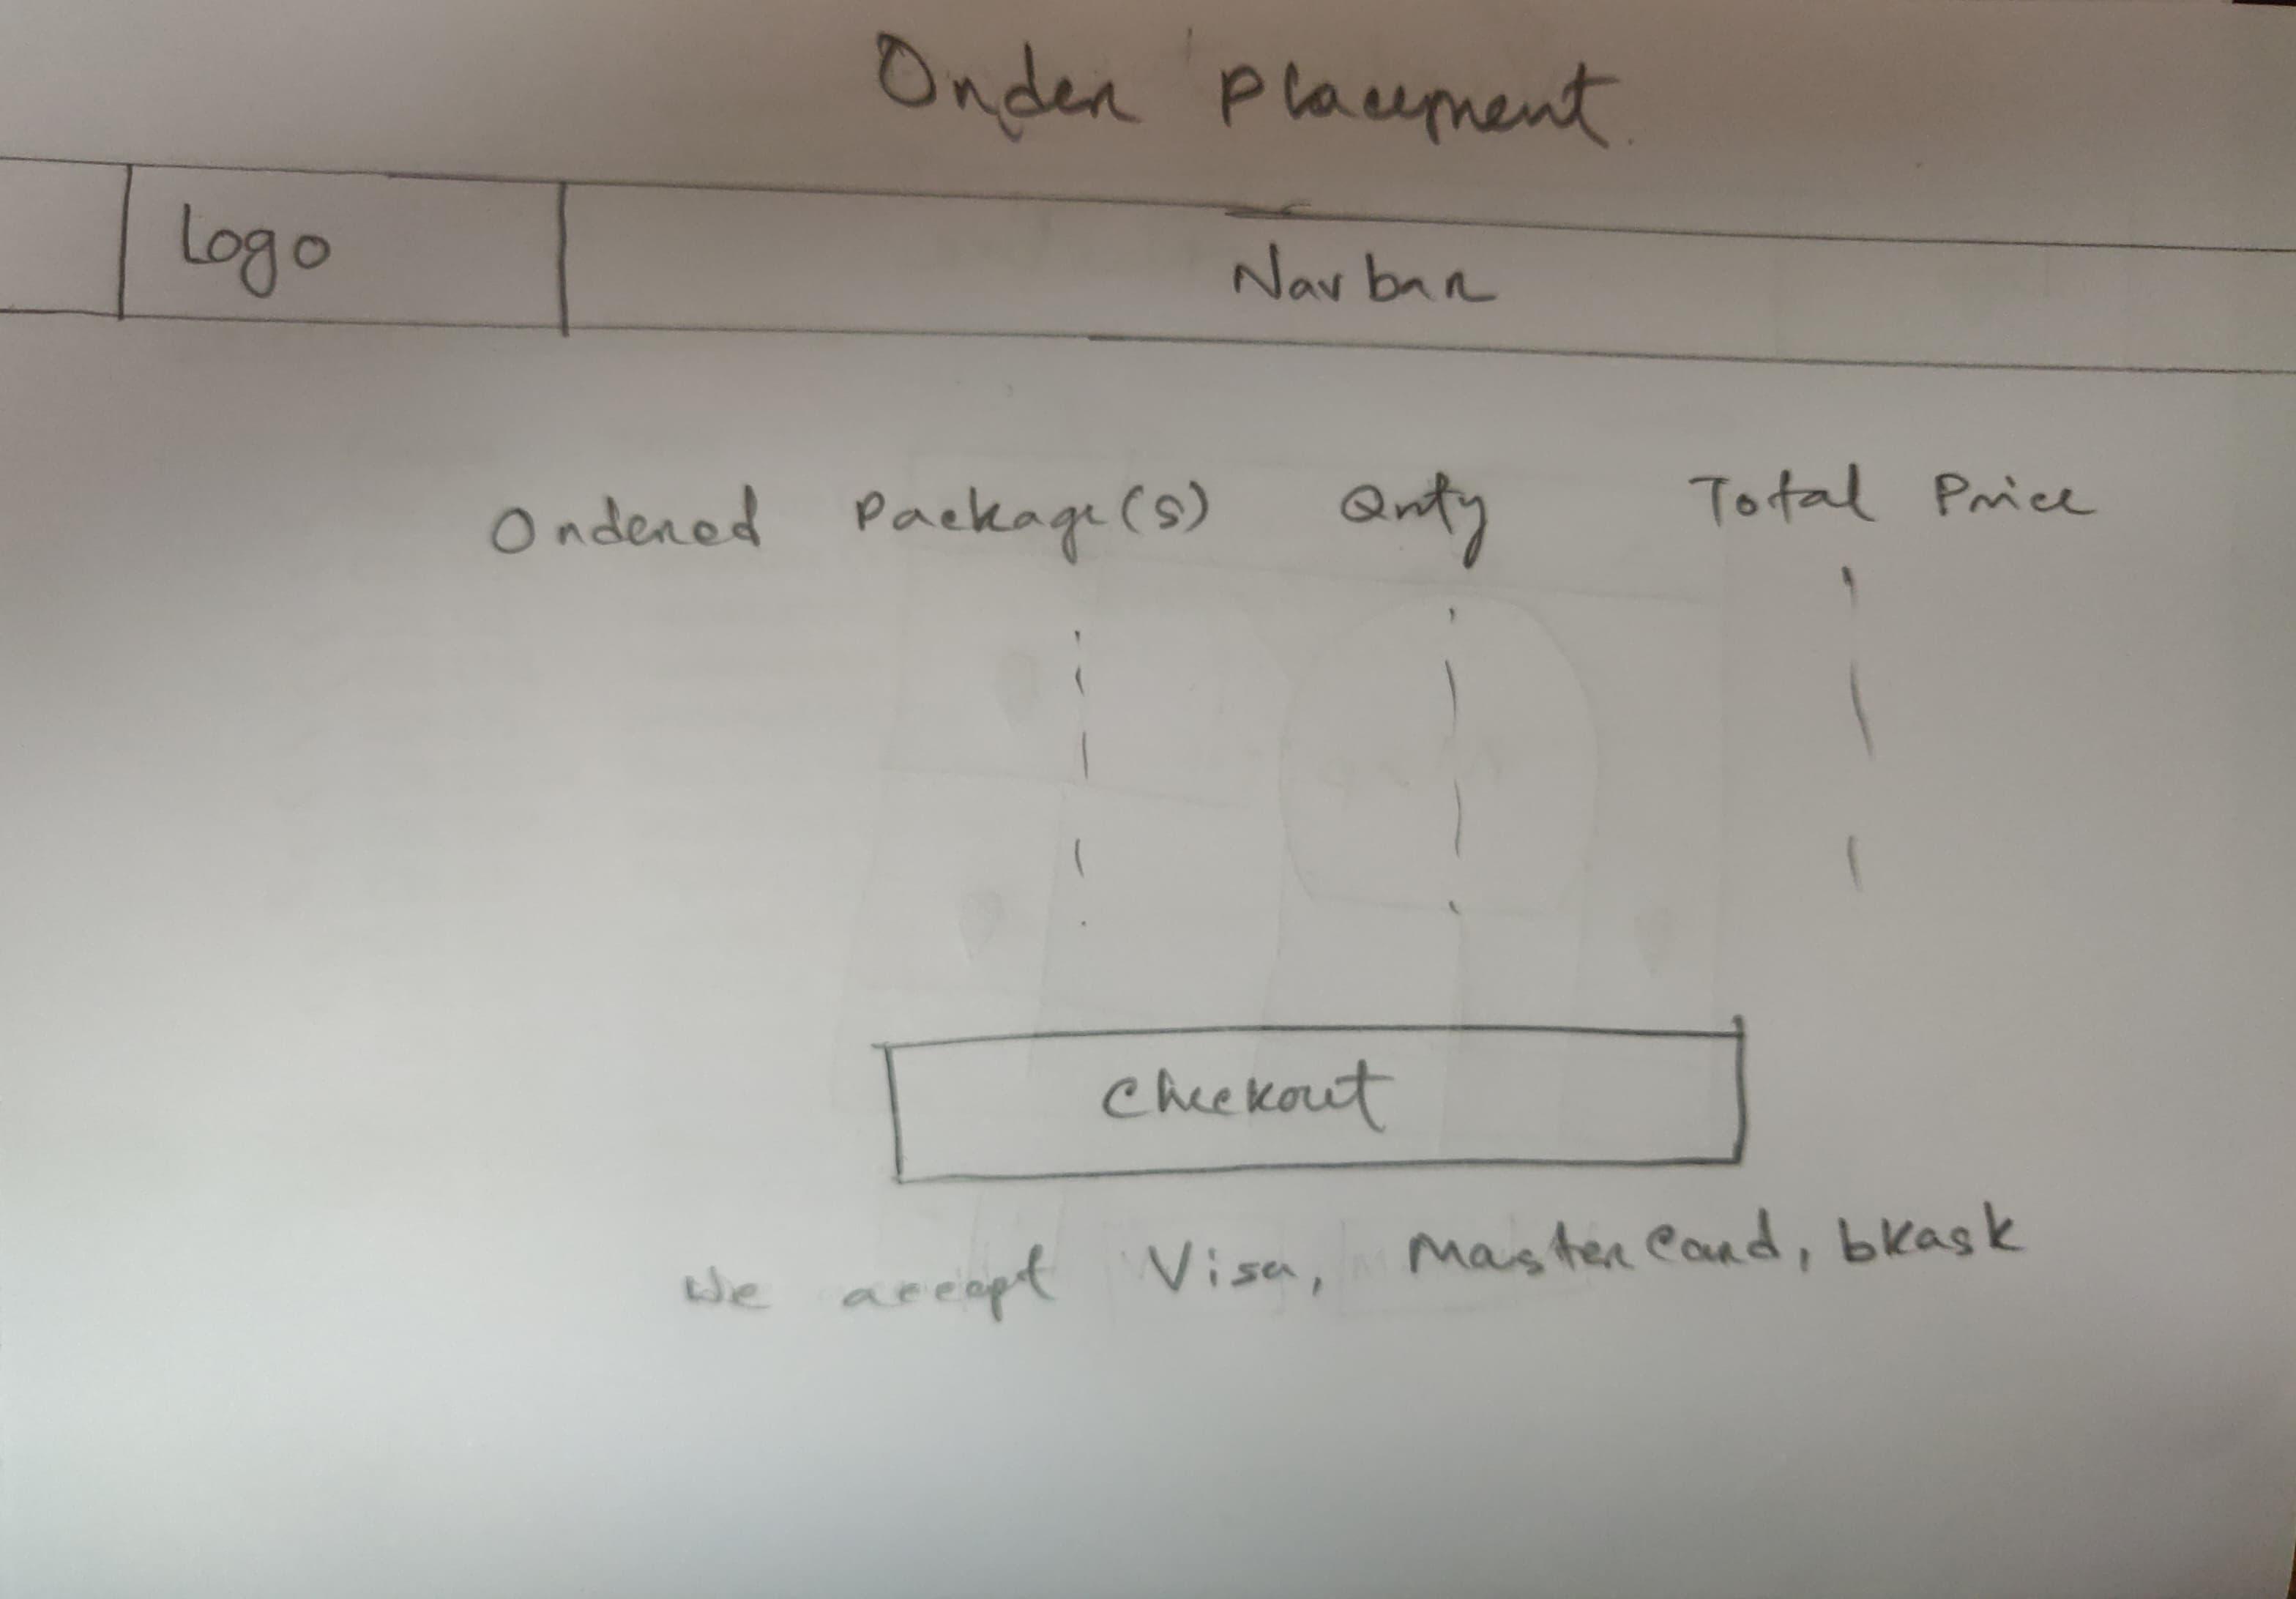 Order Placement
Logo
Navbar
Ordered Package(s) Qnty Total Price
Checkout
We accept Visa, MasterCard, bkash